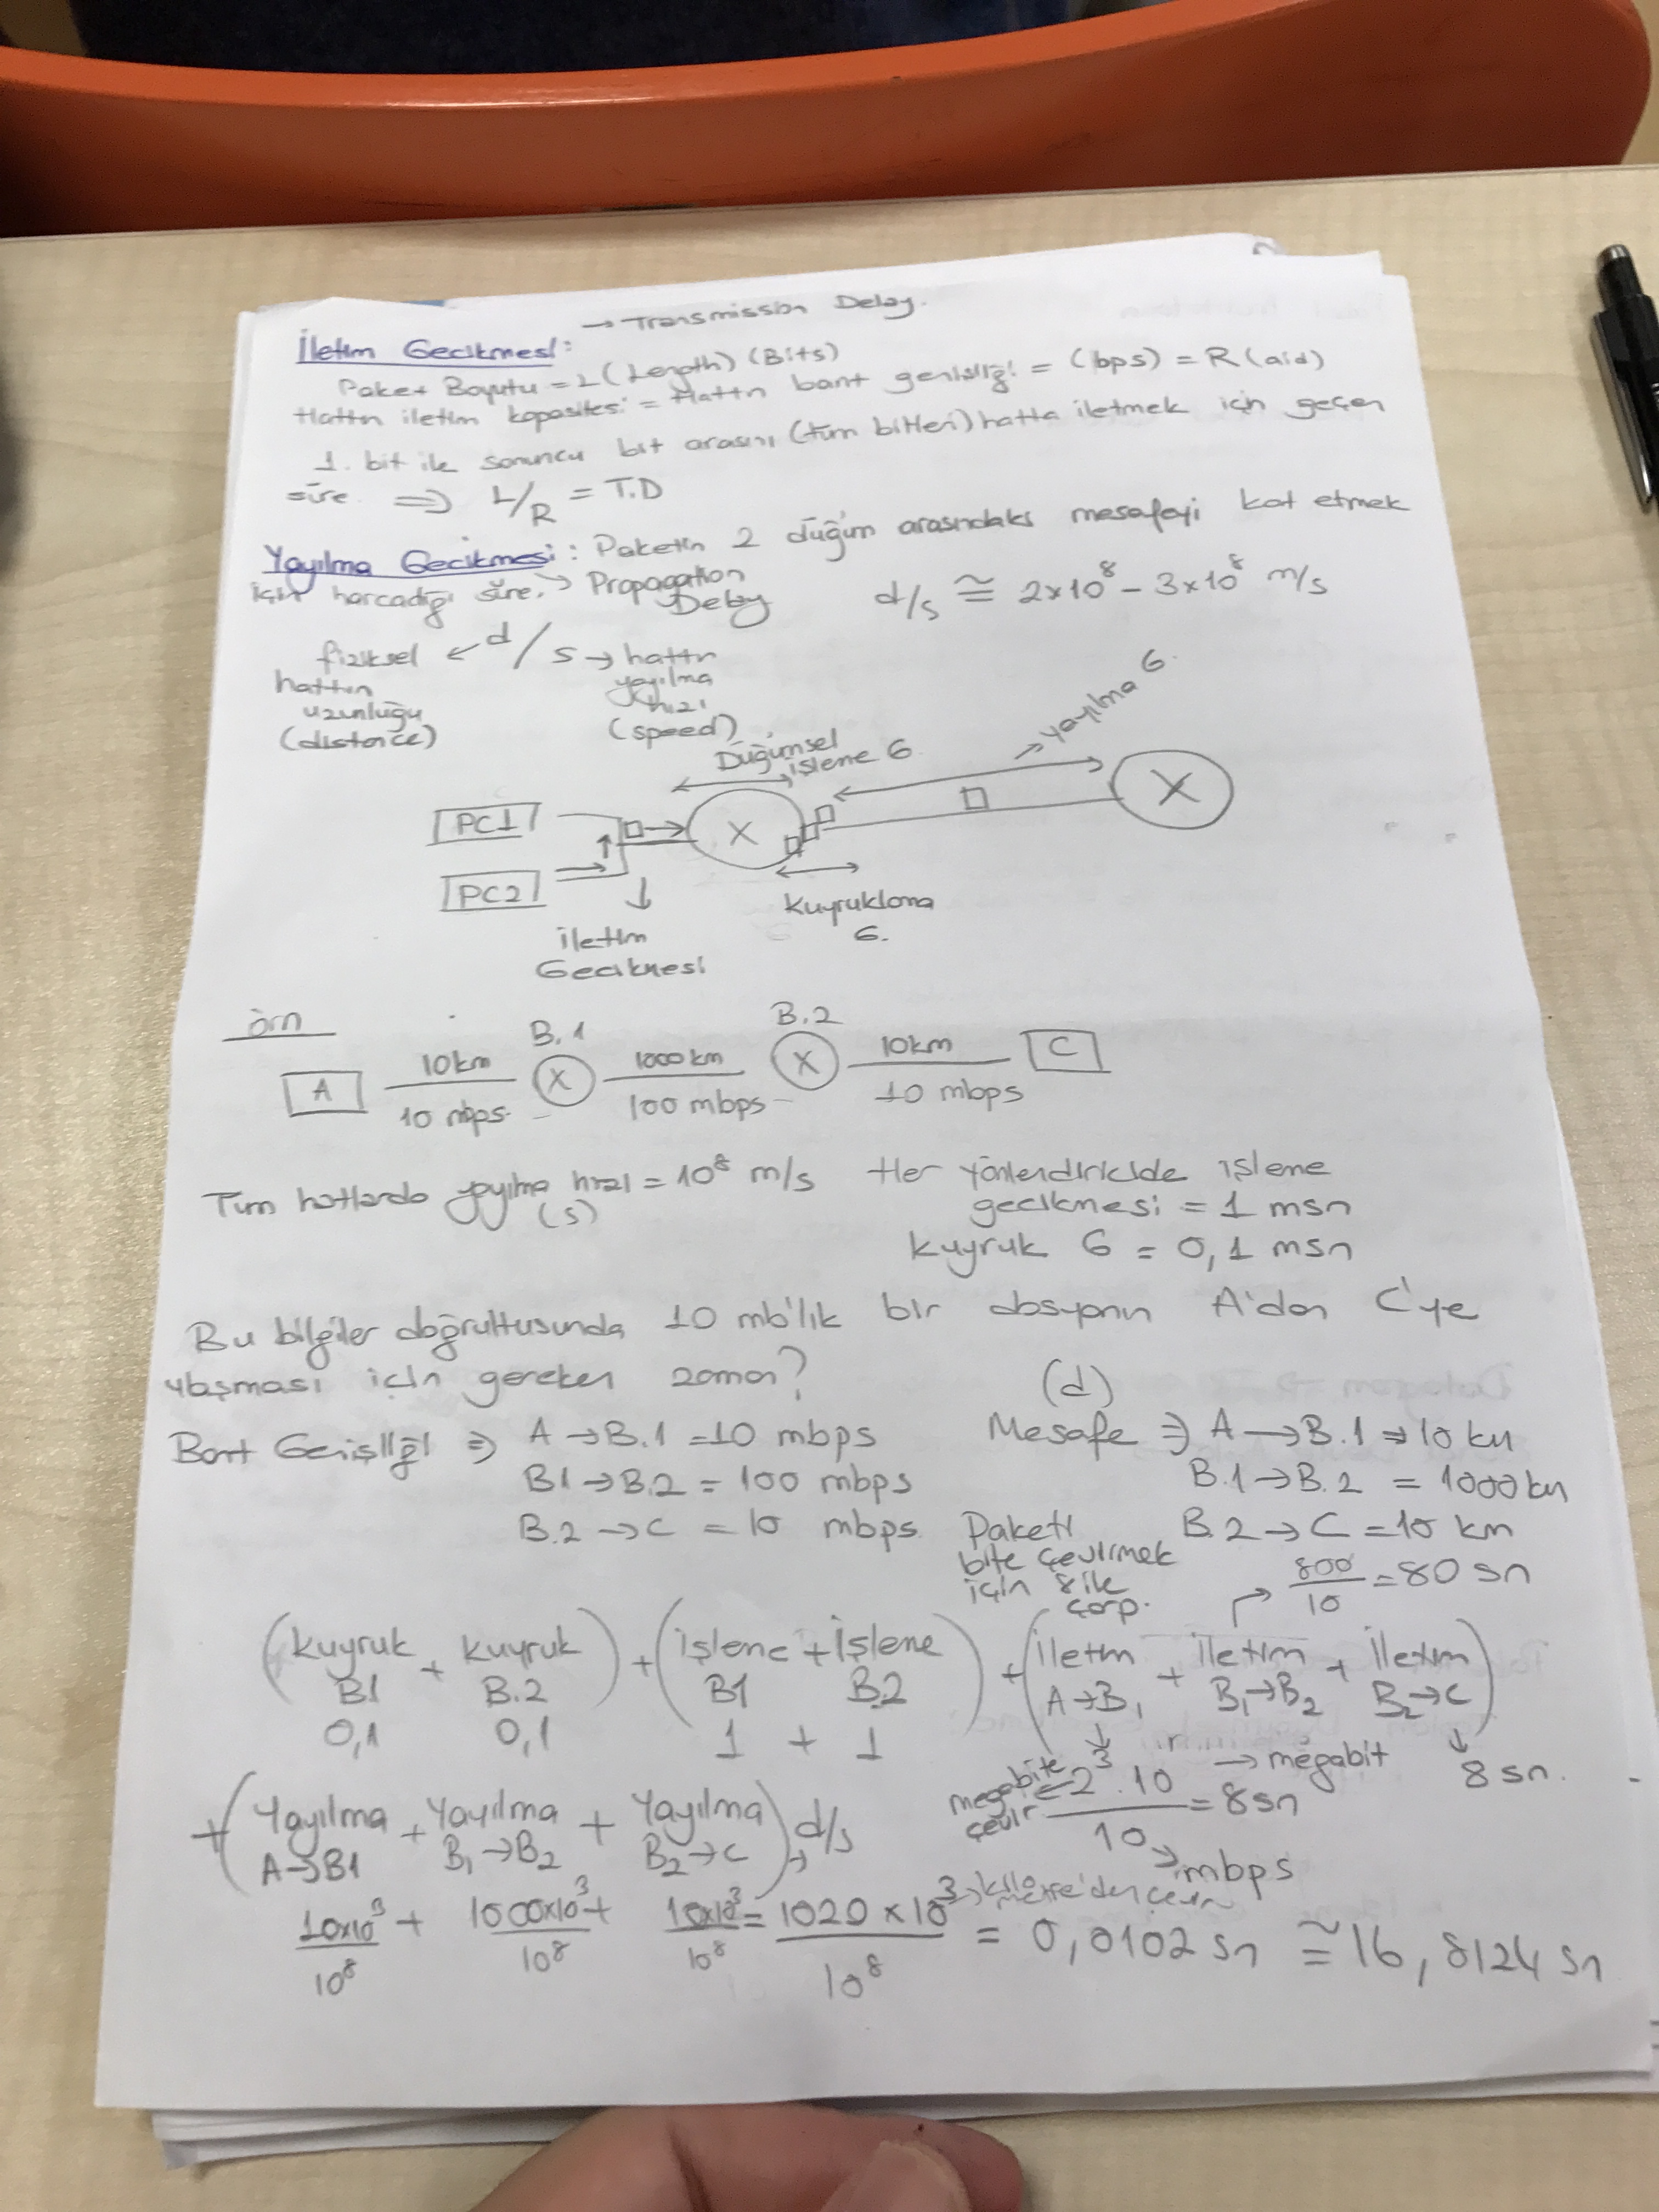 → Transmission Delay.
İletim Gecikmesi:
Paket Boyutu = L (Length) (Bits)
Hattın iletim kapasitesi = Hattın bant genişliği = (bps) = R (aid)
1. bit ile sonuncu bit arasını (tüm bitleri) hatta iletmek için geçen
süre ⇒ L/R = T.D
Yayılma Gecikmesi: Paketin 2 düğüm arasındaki mesafeyi kat etmek
için harcadığı süre. → Propagation Delay
d/s ≅ 2x10⁸ - 3x10⁸ m/s
fiziksel ← d / s → hattın
hattın yayılma
uzunluğu hızı
(distance) (speed)
Düğümsel
işleme G
→ yayılma G.
PC1
X
X
PC2
Kuyruklama
G.
İletim
Gecikmesi
örn
B.1
B.2
A 10km X 1000km X 10km C
10 mbps 100 mbps 10 mbps
Tüm hatlarda yayılma hızı = 10⁸ m/s Her yönlendiricide işleme
(s) gecikmesi = 1 msn
kuyruk G = 0,1 msn
Bu bilgiler doğrultusunda 10 mb'lık bir dosyanın A'dan C'ye
ulaşması için gereken zaman?
(d)
Bant Genişliği ⇒ A → B.1 = 10 mbps Mesafe ⇒ A → B.1 ⇒ 10 km
B1 → B.2 = 100 mbps B.1 → B.2 = 1000 km
B.2 → C = 10 mbps. B.2 → C = 10 km
Paketi
bite çevirmek
için 8 ile
çarp.
→ 800/10 = 80 sn
(kuyruk B1 + kuyruk B.2) + (işleme B1 + İşleme B.2) + (İletim A→B₁ + İletim B₁→B₂ + İletim B₂→C)
0,1 0,1 1 + 1
megabite çevir ← 2³.10 → megabit
/ 10 = 8sn
→ mbps
8 sn.
+ (Yayılma A→B1 + Yayılma B₁→B₂ + Yayılma B₂→C) → d/s
10x10³/10⁸ + 1000x10³/10⁸ + 10x10³/10⁸ = 1020 x 10³/10⁸ = 0,0102 sn ≅ 16,8124 sn